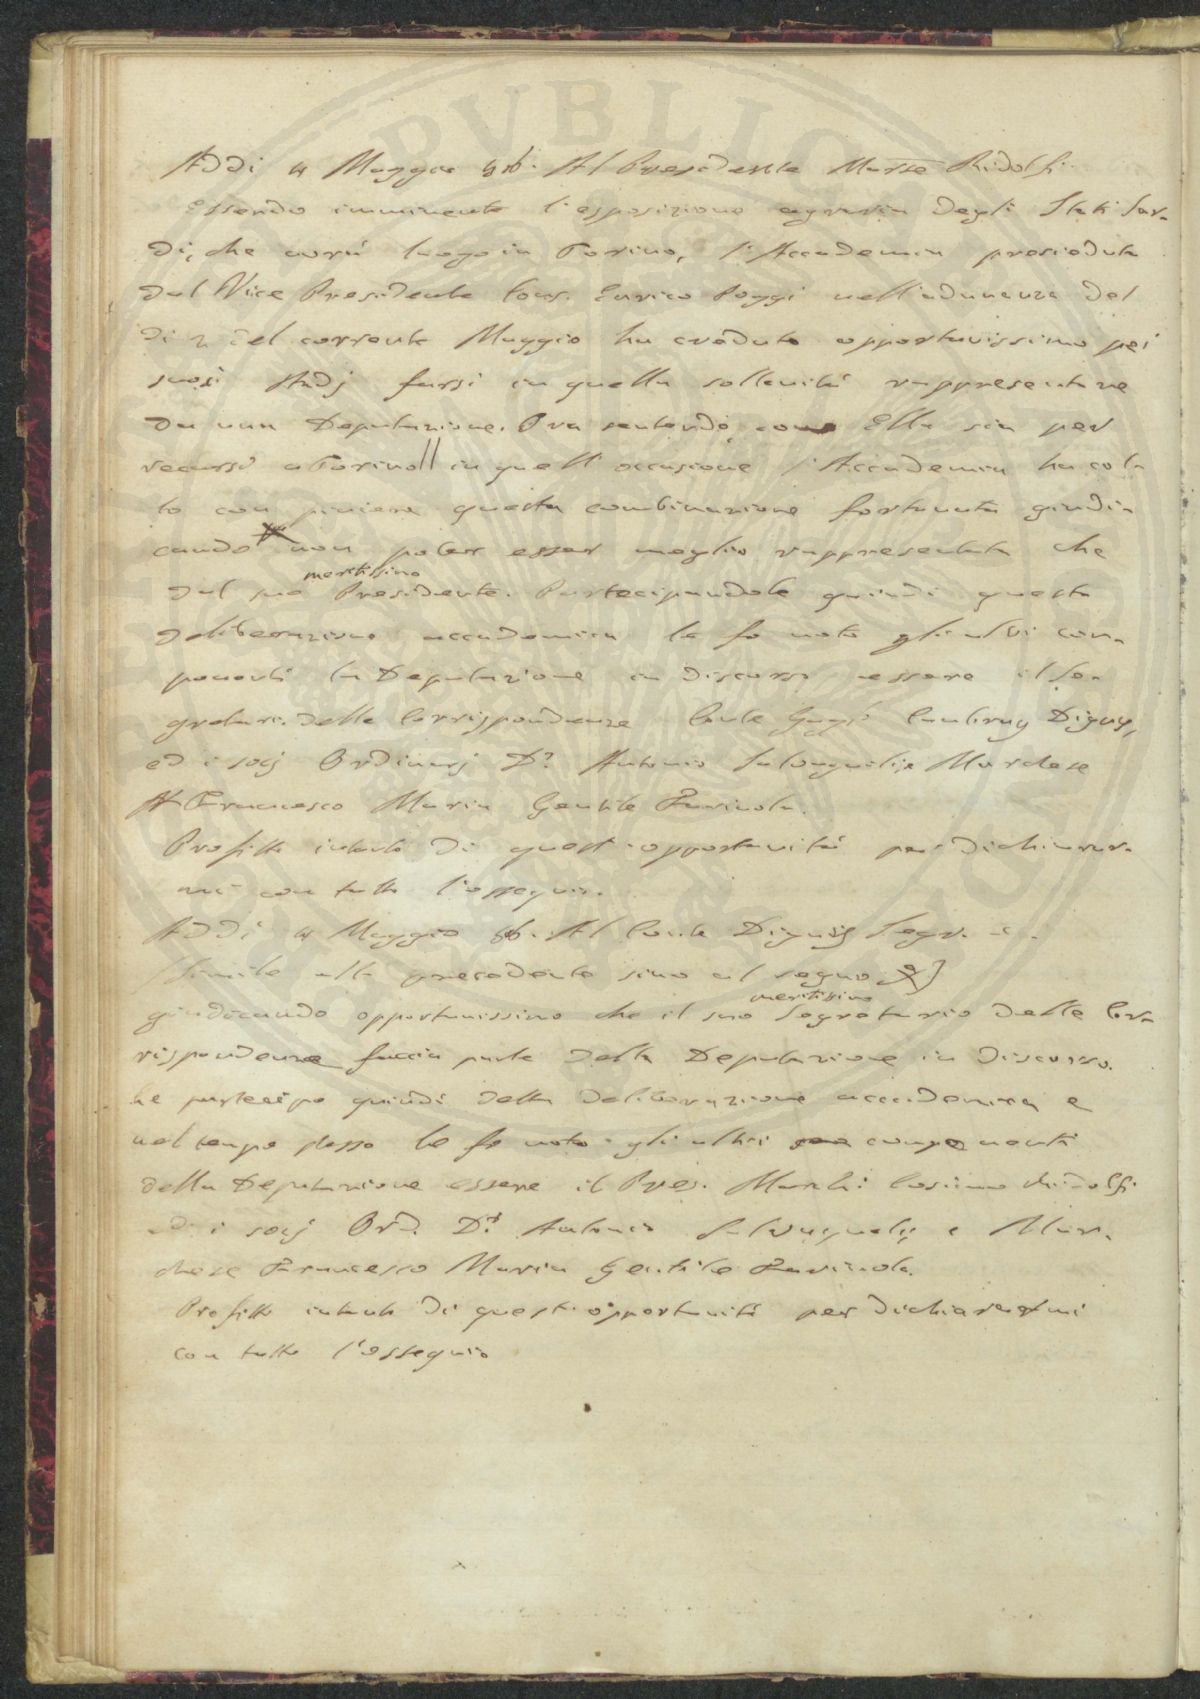 Addì 4 Maggio 56. Al Presidente March.e Ridolfi
Essendo imminente l'esposizione agraria degli Stati Sar-
di, che avrà luogo in Torino, l'Accademia presieduta
dal Vice Presidente Cons. Enrico Poggi nell'adunanza del
dì 2 del corrente Maggio ha creduto opportunissimo pei
suoi studj farsi in quella sollenità rappresentare
da una Deputazione. Ora sentendo, come Ella sia per
recarsi a Torino in quell'occasione l'Accademia ha col-
to con piacere questa combinazione fortunata giudi-
cando non poter esser meglio rappresentata che
dal suo meritissimo Presidente. Partecipandole quindi questa
deliberazione accademica le fo noto gli altri com-
ponenti la Deputazione in discorso essere il Se-
gretario delle Corrispondenze Conte Cambray Digny,
ed i socj Ordinarj D.r Antonio Salvagnoli e Marchese
Francesco Maria Gentile Farinola.
Profitto intanto di quest'opportunità per dichiarar-
mi con tutto l'ossequio.
Addì 4 Maggio 56. Al Conte Digny Segr.
Simile alla precedente sino al segno
giudicando opportunissimo che il suo meritissimo Segretario delle Cor-
rispondenze faccia parte della Deputazione in discorso.
Le partecipo quindi detta deliberazione accademica e
nel tempo stesso le fo noto gli altri componenti
della Deputazione essere il Pres. March. Cosimo Ridolfi
ed i socj Ord. D.r Antonio Salvagnoli e Mar-
chese Francesco Maria Gentile Farinola.
Profitto intanto di quest'opportunità per dichiararmi
con tutto l'ossequio